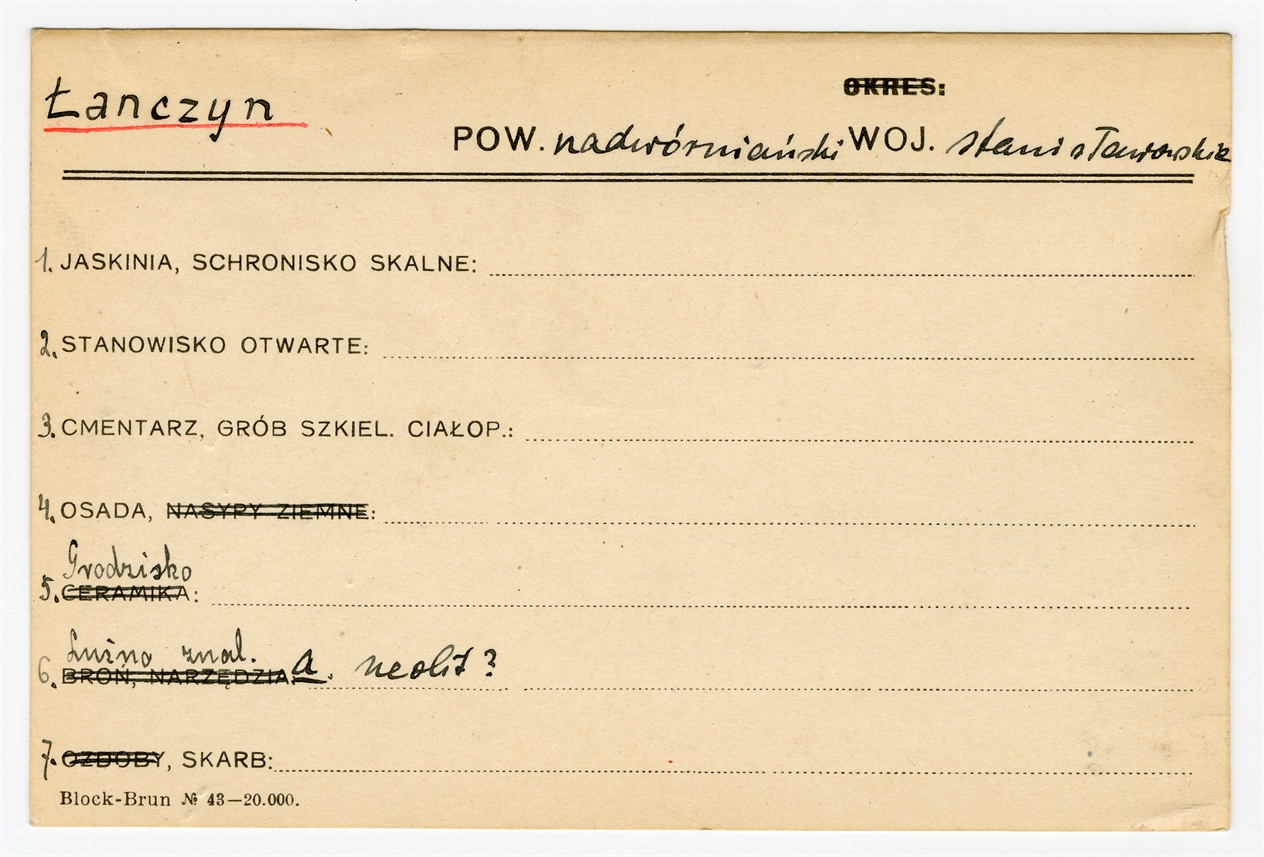 OKRES:
Łanczyn
POW. nadwórniański WOJ. stanisławowskie
1. JASKINIA, SCHRONISKO SKALNE:
2. STANOWISKO OTWARTE:
3. CMENTARZ, GRÓB SZKIEL. CIAŁOP.:
4. OSADA, NASYPY ZIEMNE:
Grodzisko
5. CERAMIKA:
Luźno znal.
6. BROŃ, NARZĘDZIA: a. neolit?
7. OZDOBY, SKARB:
Block-Brun № 43—20.000.